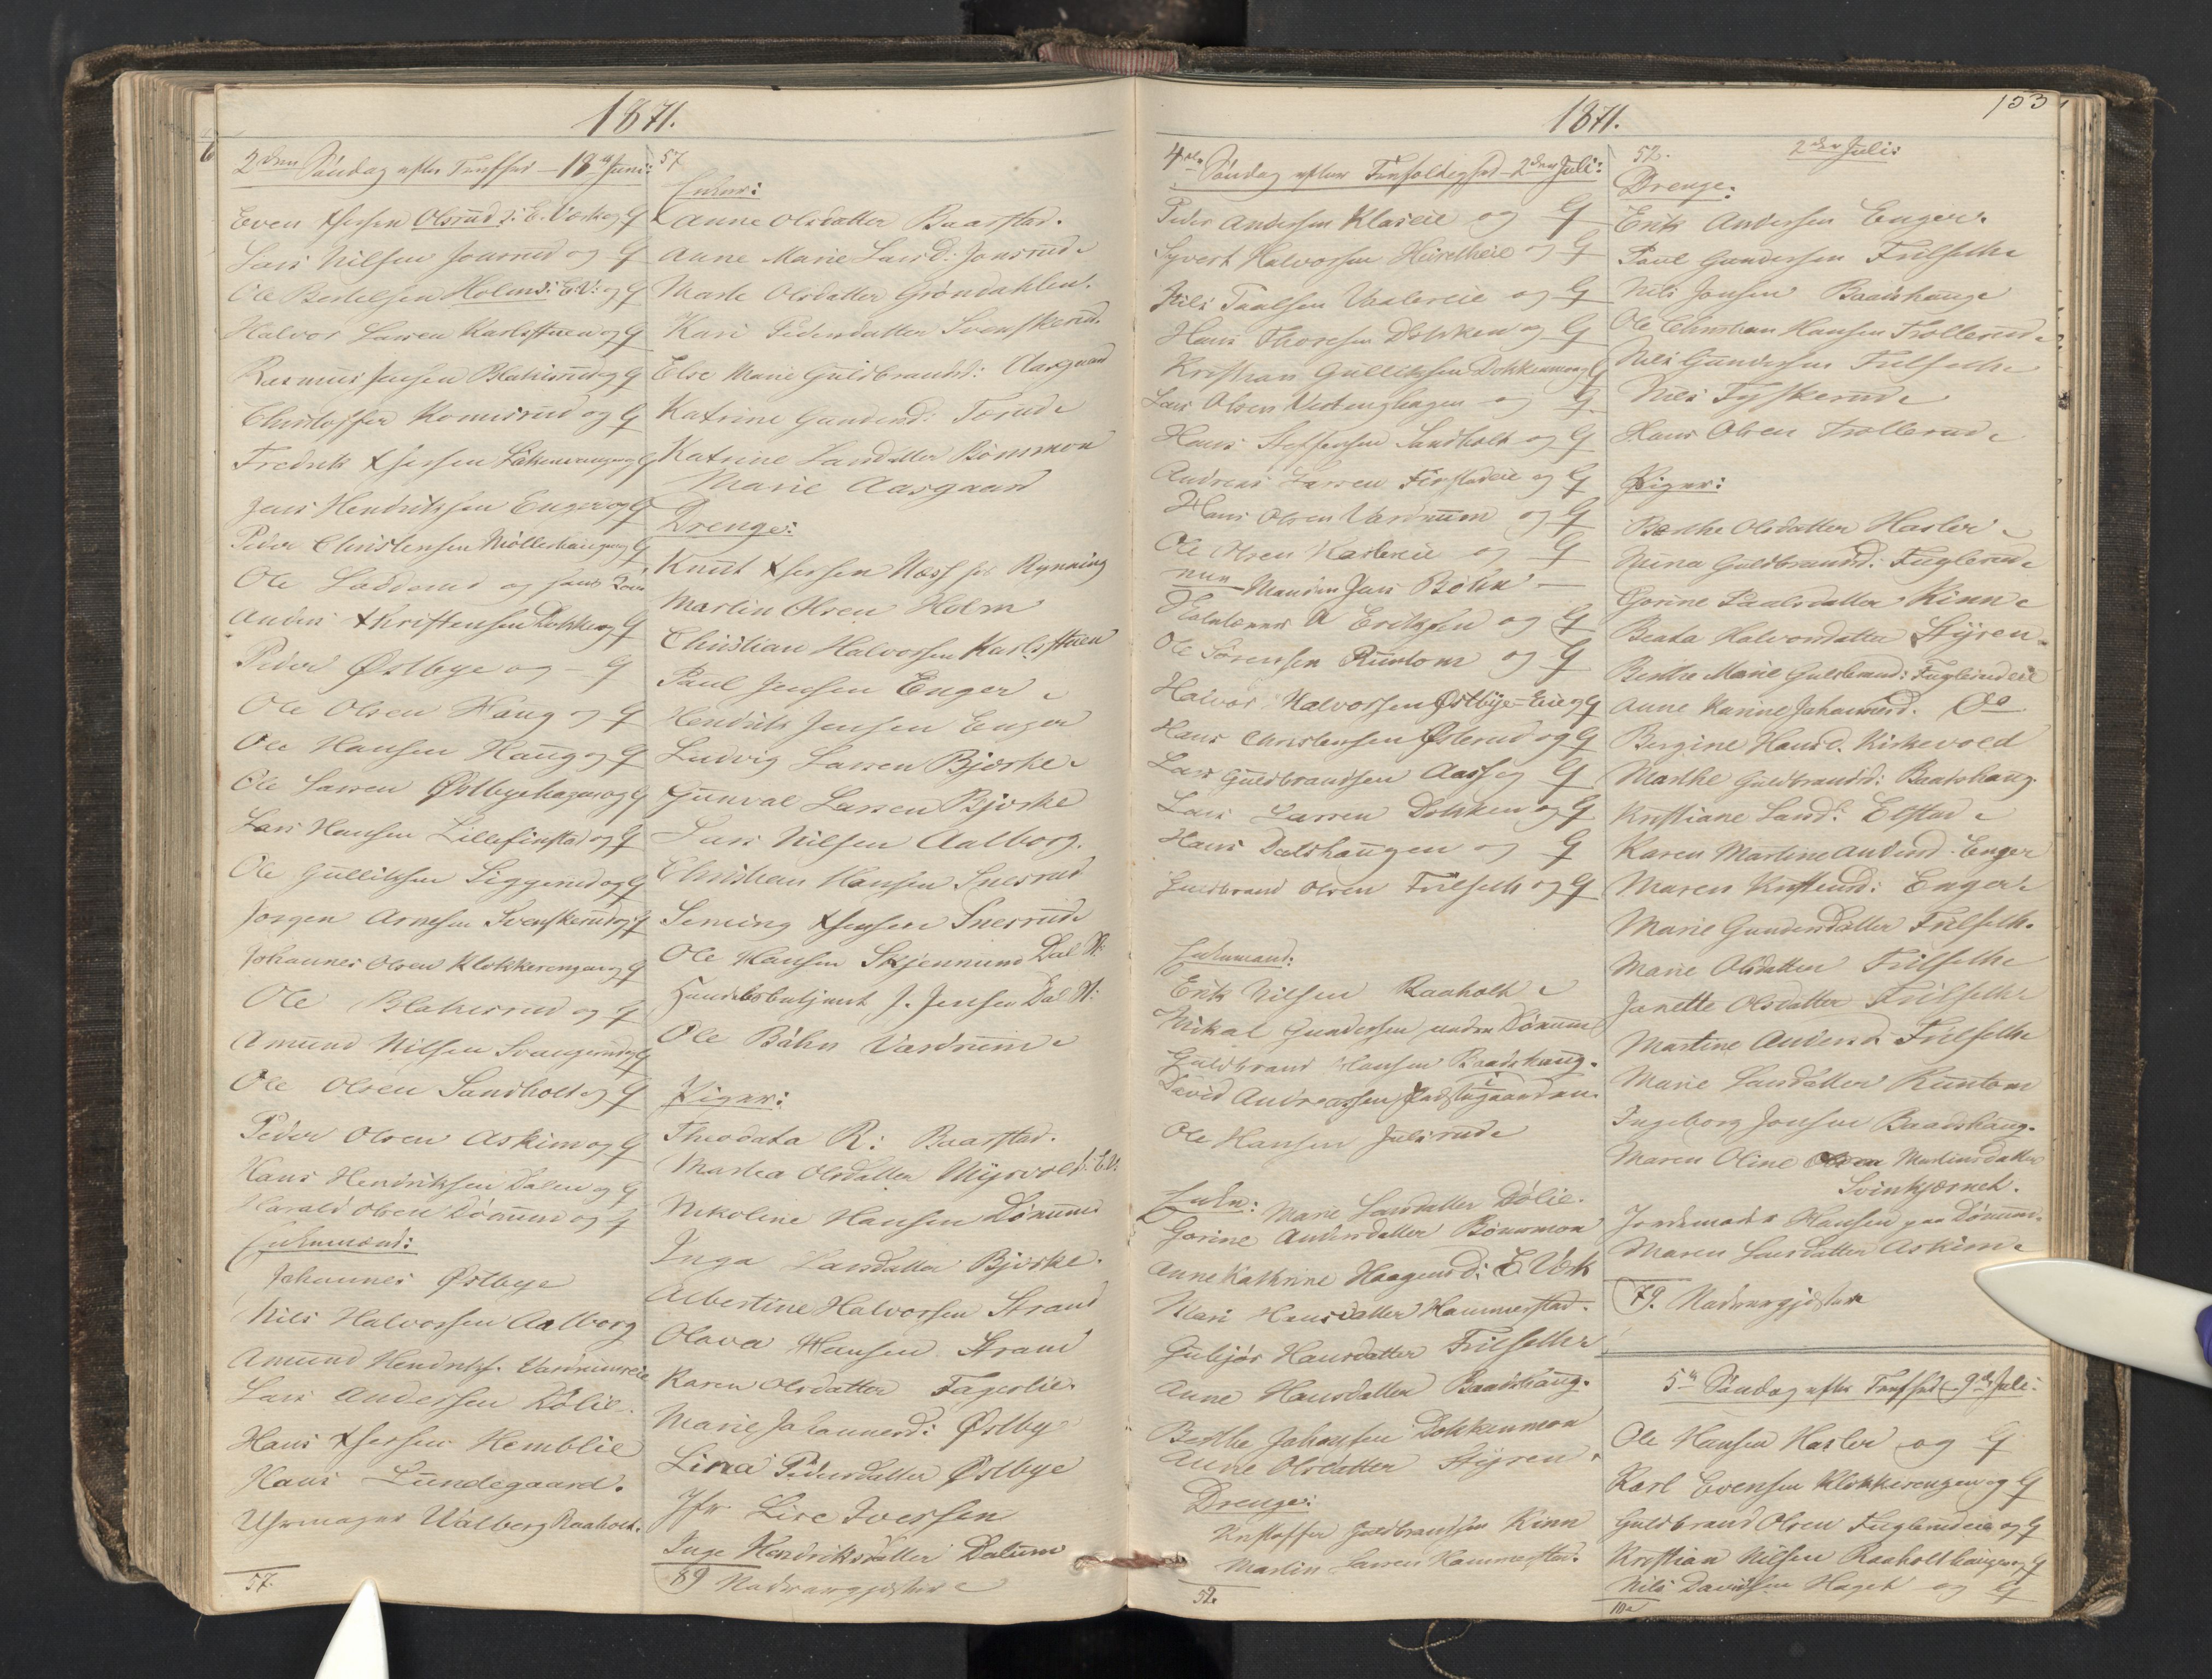 1871.
2den Søndag efter Trefhed – 18de Juni:
Even Ksersen Olsrud s: E. Værk og G
Lars Nilsen Jonsrud og G
Ole Bertelsen Holm s: E.V: og G
Halvor Larsen Karlsstuen og G
Rasmus Jensen Blakisrud og G
Christoffer Komisrud og G
Fredrik og G
Jens Hendriksen Enger og G
Peder Christensen Møllerhaugen og G
Ole og hans Kone
Anders Kristensen Dokken og G
Peder Østbye og – G
Ole Olsen Haug og G
Ole Hansen Haug og G
Ole Larsen Østbyehagen og G
Lars Hansen Lillefinstad og G
Ole Gulliksen Liggerud og G
Jørgen Arnesen Svenskerud og G
Johannes Olsen Klokkerengen og G
Ole Blakisrud og G
Amund Nilsen og G
Ole Olsen Sandholt og G
Peder Olsen Askim og G
Hans Hendriksen Dalen og G
Harald Olsen Dønnum og G
Enkemænd:
Johannes Østbye
Nils Halvorsen Aalborg
Amund Hendriks. Værdrumeie
Lars Andersen Dølie.
Hans Hemblie
Hans Lundegaard.
Uhrmager Walberg Raaholt.
57.
57
Enker:
Anne Olsdatter Baarstad.
Anne Marie Larsd: Jonsrud
Marte Olsdatter Grøndahlen.
Kari Pedersdatter Svenskerud.
Else Marie Guldbrandsd: Aasgaard
Katrine Gundersd: Torud
Katrine Larsdatter Bønmon
Marie Aasgaard
Drenge:
Knut Næss hos Rynning
Martin Olsen Holm
Christian Halvorsen Karlsstuen
Paul Jensen Enger
Hendrik Jensen Enger
Ludvig Larsen Bjørke
Gunval Larsen Bjørke
Lars Nilsen Aalborg.
Christian Hansen Snesrud
Seming Snesrud
Ole Hansen Skjennum Dal St:
Handelsbetjent J. Jensen Dal St:
Ole Bøhn Værdrum
Piger:
Theodata R: Baarstad.
Martea Olsdatter Myrvold s: E.V.
Nikoline Hansen Dønnum
Inga Larsdatter Bjørke.
Albertine Halvorsen Strand
Olava Hansen Strand
Karen Olsdatter Fagerlie.
Marie Johannesd: Østby
Lina Pedersdatter Østbye
Jfr. Lise Iversen
Inge Hendriksdatter Dalum
89 Nadvergjæster
1871.
153
4de Søndag efter Trefoldighed – 2den Juli:
Peder Andersen Klæseie og G
Syvert Halvorsen og G
Nils Paulsen og G
Hans Thoresen Dokken og G
Kristian Gulliksen Dokkenmon og G
Lars Olsen Vestenghagen og G
Hans Steffensen Sandholt og G
Andreas Larsen Finstadeie og G
Hans Olsen Værdrum og G
Ole Olsen Haslereie og G
Jens Bøhn –
A Eriksen og G
Ole Sørensen Runtom og G
Halvor Halvorsen Østbye-Eie og G
Hans Christensen Østerud og G
Lars Guldbrandsen Aas og G
Lars Larsen Dokken og G
Hans Dalshaugen og G
Guldbrand Olsen Frilseth og G
Enkemænd:
Erik Nilsen Raaholt
Mikal Gundersen under Dønnum
Guldbrand Hansen Baadshaug.
David Andreassen
Ole Hansen Julsrud
Enker: Marie Larsdatter Dølie.
Gorine Andersdatter Bønnmon
Anne Kathrine Haagensd: E. Værk
Mari Hansdatter Hammerstad.
Gubjør Hansdatter Frilseth
Anne Hansdatter Baadshaug.
Berthe Johansen Dokkenmon
Anne Olsdatter Styren
Drenge:
Kristoffer Guldbrandsen Kinn
Martin Larsen Hammerstad.
52.
52.
2den Juli:
Drenge:
Erik Andersen Enger.
Paul Gundersen Frilseth
Nils Jonsen Baadshaug
Ole Christian Hansen Trollerud
Nils Gundersen Frilseth
Nils Tyskerud
Hans Olsen Trollerud
Piger:
Berthe Olsdatter Hasler
Anna Guldbrandsd: Fuglerud
Gorine Paulsdatter Kinn
Beata Halvorsdatter Styren
Berthe Marie Gulbrands: Fuglerudeie
Anne Karine Johannesd. Do
Bergine Hansd. Kirkevold
Marthe Guldbrandsd: Baadshaug.
Kristiane Larsd: Elstad
Karen Martine Andersd. Enger
Maren Kristensd: Enger
Marie Gundersdatter Frilseth.
Marie Olsdatter Frilseth
Janette Olsdatter Frilseth
Martine Andersd. Frilseth
Marie Larsdatter Runtom
Ingeborg Jonsen Baadshaug.
Maren Oline Martinsdatter
Svinkjærnet.
Jordemoder Hansen paa Dønnum.
Maren Larsdatter Askim
79. Nadvergjæster
5te Søndag efter Trefhed – 9de Juli:
Ole Hansen Hasler og G
Karl Evensen Klokkerengen og G
Guldbrand Olsen Fuglerudeie og G
Kristian Nilsen Raaholthaugen og G
Nils Davidsen Haget og G
10